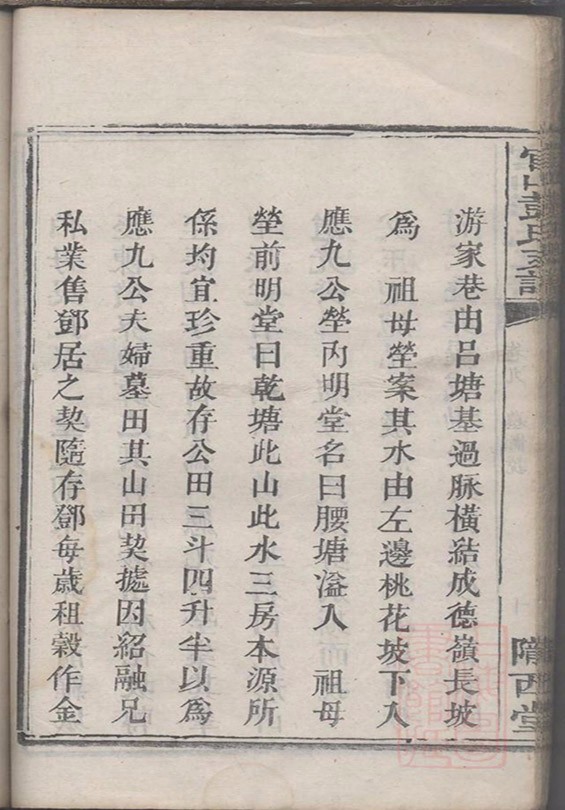 官山彭氏家譜
隴西堂
游家巷由呂塘基過脉橫結成德嶺長坡
為 祖母塋案其水由左邊桃花坡下入
應九公塋內明堂名曰腰塘溢入 祖母
塋前明堂曰乾塘此山此水三房本源所
係均宜珍重故存公田三斗四升半以為
應九公夫婦墓田其山田契據因紹融兄
私業售鄧居之契隨存鄧每歲租穀作金